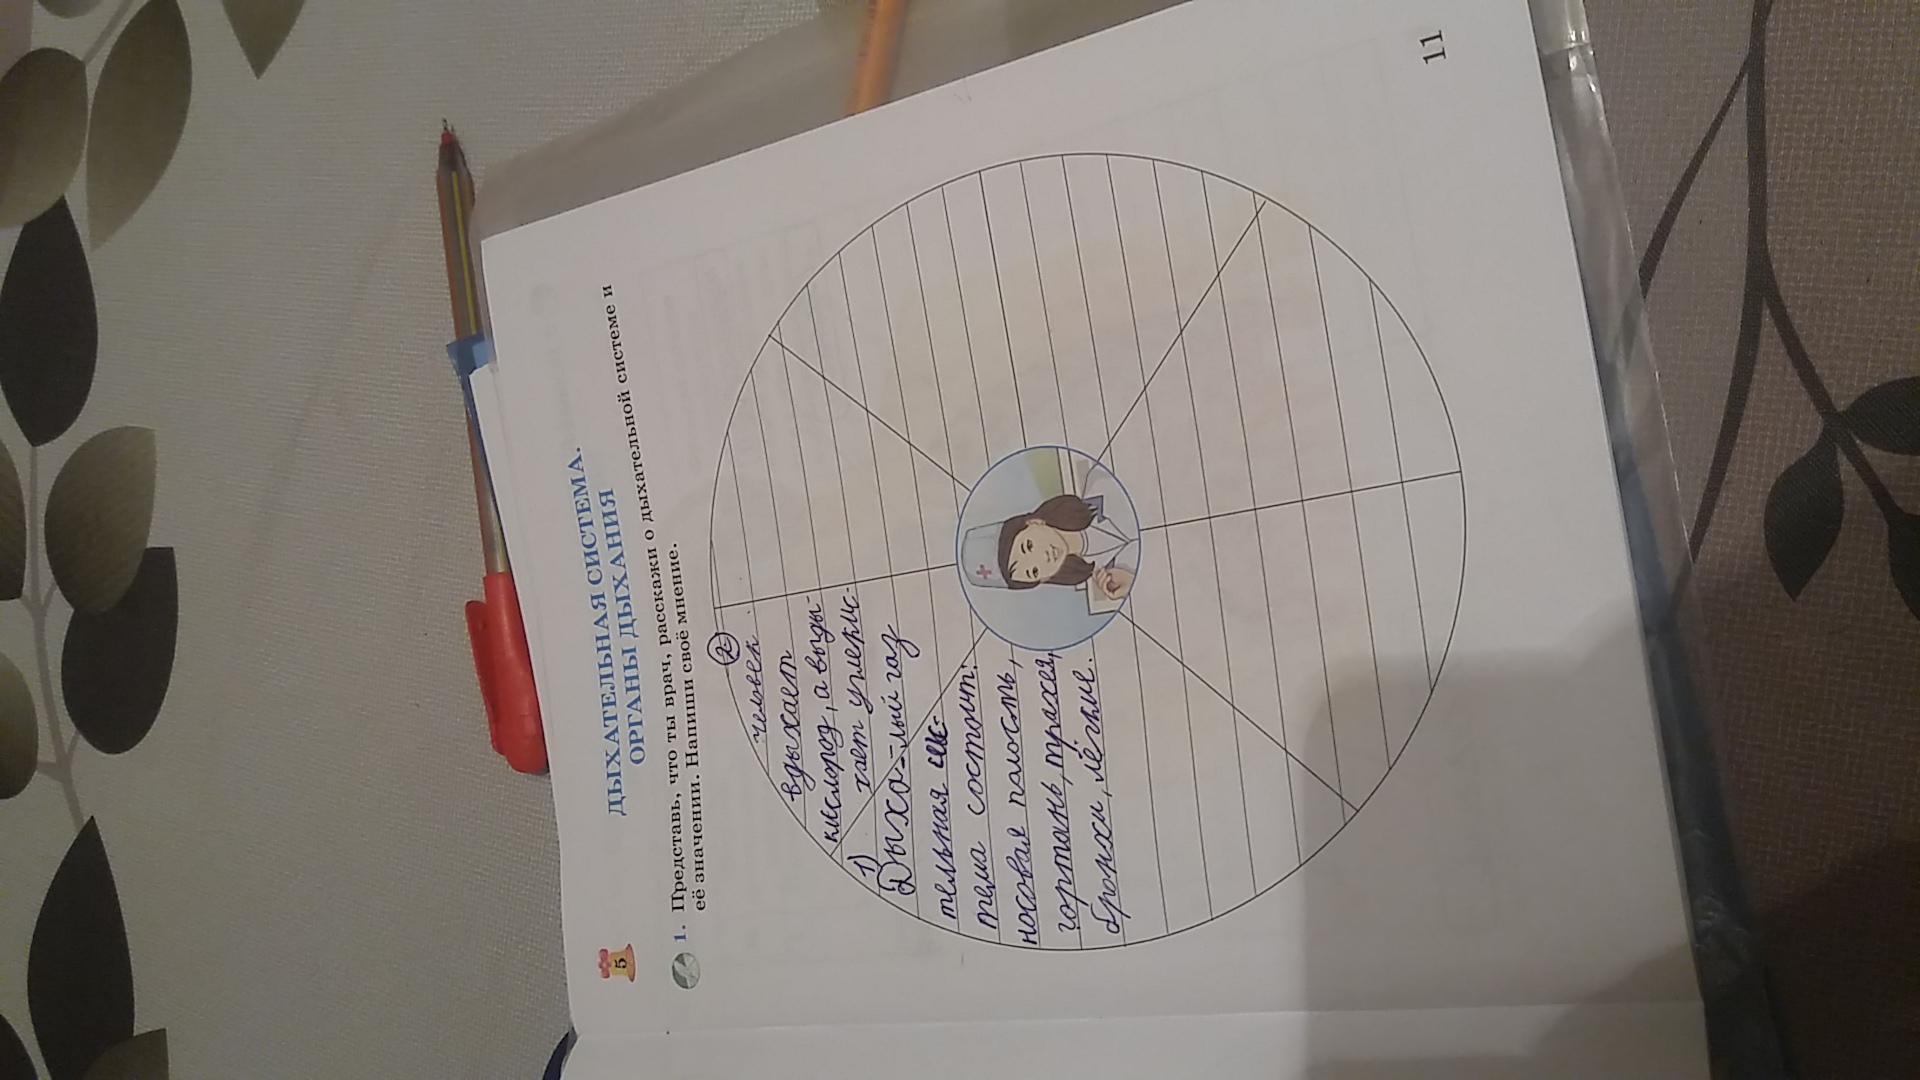 5
ДЫХАТЕЛЬНАЯ СИСТЕМА.
ОРГАНЫ ДЫХАНИЯ
1. Представь, что ты врач, расскажи о дыхательной системе и
её значении. Напиши своё мнение.
2
человек
вдыхает
кислород, а выды-
хает углекис-
лый газ
1)
Дыха-
тельная сис-
тема состоит:
носовая полость,
гортань, трахея,
бронхи, лёгкие.
11